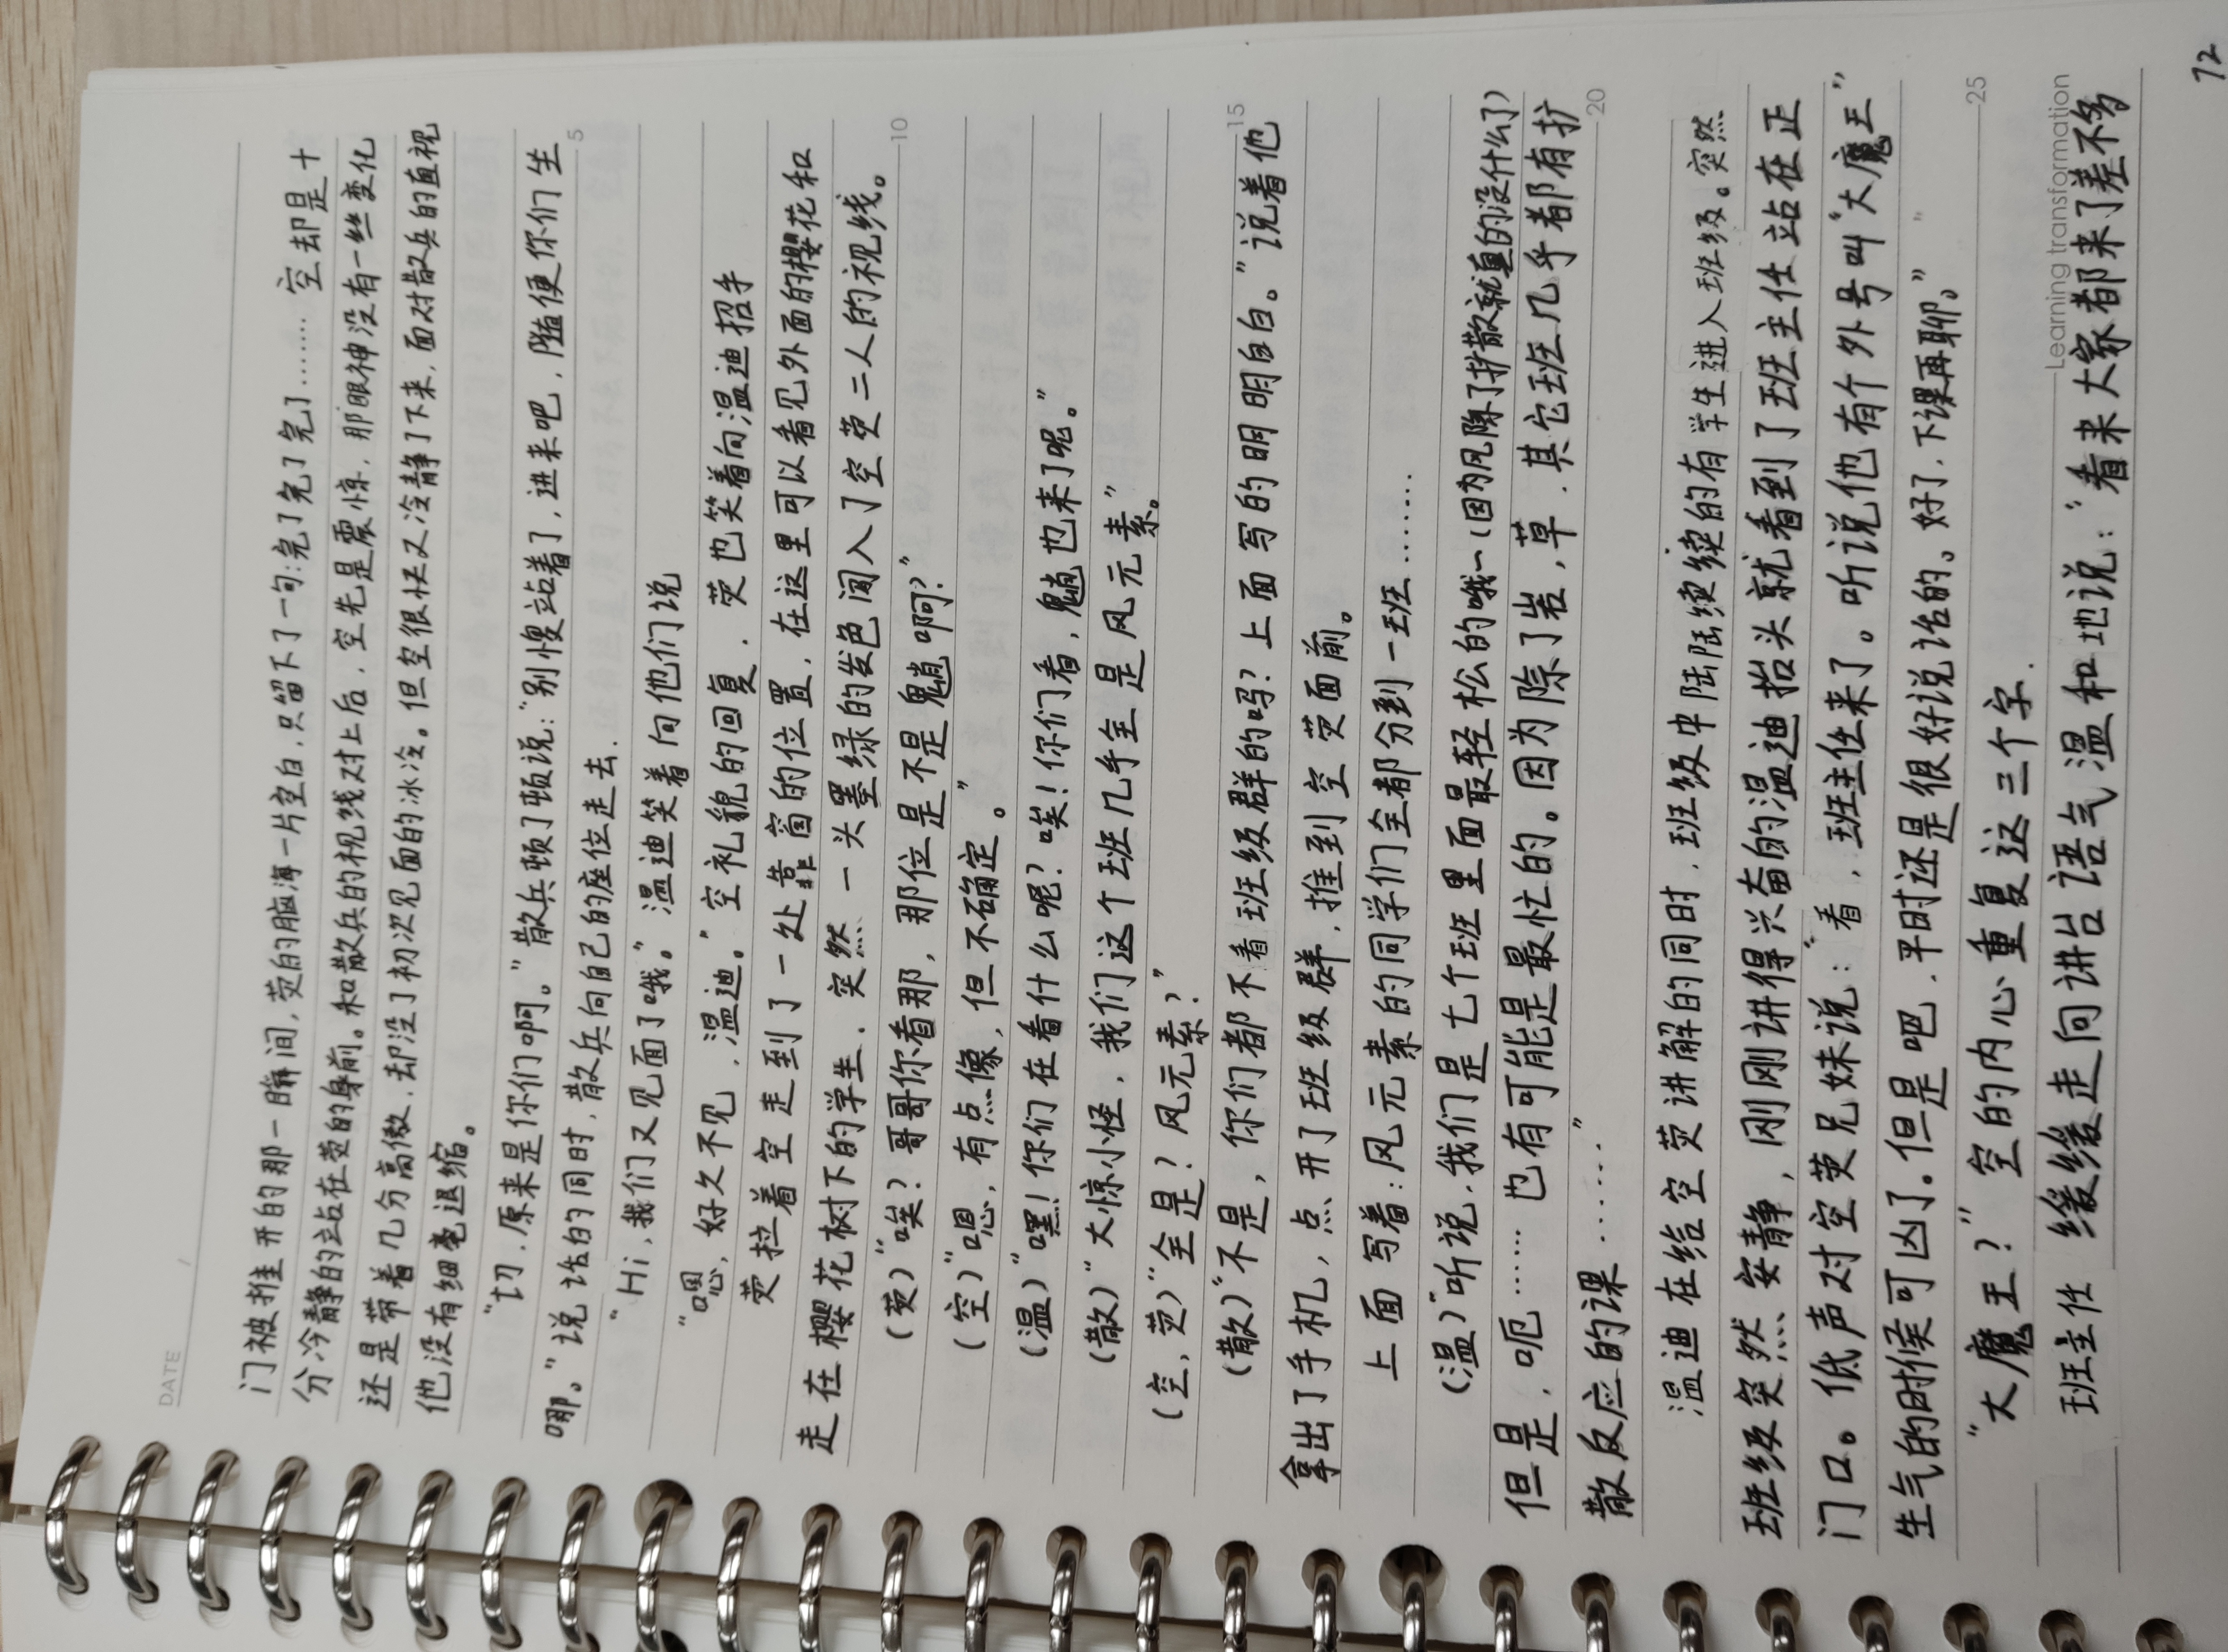 DATE
门被推开的那一瞬间,荧的脑海一片空白,只留下了一句:完了完了完了…… 空却是十
分冷静的站在荧的身前。和散兵的视线对上后,空先是震惊,那眼神没有一丝变化
还是带着几分高傲,却没了初次见面的冰冷。但空很快又冷静了下来,面对散兵的直视
他没有细毫退缩。
“切,原来是你们啊。”散兵顿了顿说:“别傻站着了,进来吧,随便你们生
哪。”说话的同时,散兵向自己的座位走去.
5
“Hi,我们又见面了哦。”温迪笑着向他们说
“嗯,好久不见,温迪。”空礼貌的回复,荧也笑着向温迪招手
荧拉着空走到了一处靠窗的位置,在这里可以看见外面的樱花和
走在樱花树下的学生,突然一头墨绿的发色闯入了空荧二人的视线。
(荧)“唉?哥哥你看那,那位是不是魈啊?”
10
(空)“嗯,有点像,但不确定。”
(温)“嘿!你们在看什么呢?唉!你们看,魈也来了呢。”
(散)“大惊小怪,我们这个班几乎全是风元素。”
(空,荧)“全是?风元素?”
(散)“不是,你们都不看班级群的吗?上面写的明明白白。”说着他
15
拿出了手机,点开了班级群,推到空荧面前。
上面写着:风元素的同学们全都分到一班……
(温)“听说,我们是七个班里面最轻松的哦~(因为风除了扩散就真的没什么了)
但是,呃…… 也有可能是最忙的。因为除了岩,草,其它班几乎都有扩
散反应的课……”
20
温迪在给空荧讲解的同时,班级中陆陆续续的有学生进入班级。突然
班级突然安静,刚刚讲得兴奋的温迪抬头就看到了班主任站在正
门口。低声对空荧兄妹说:“看,班主任来了。听说他有个外号叫“大魔王”
生气的时候可凶了。但是吧,平时还是很好说话的、好了,下课再聊。”
“大魔王?”空的内心重复这三个字.
25
班主任 缓缓走向讲台语气温和地说:“看来大家都来了差不多
Learning transformation
72